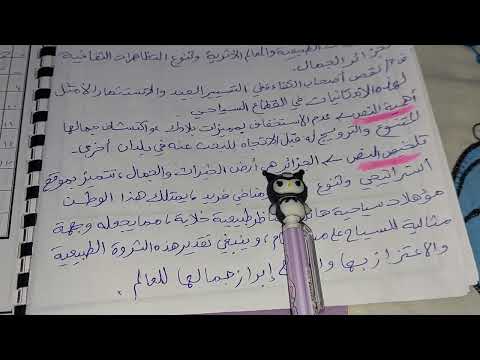 الطبيعية والمعالم الأثرية وتنوع التظاهرات الثقافية
جزائر الجمال.
نقص أصحاب الكفاءة في التسيير الجيد والاستثمار الأمثل
لهذه الإمكانيات في القطاع السياحي.
أهمية النص ← عدم الاستخفاف بمميزات بلادنا واكتشاف جمالها
المتنوع والترويج له قبل الاتجاه للبحث عنه في بلدان أخرى.
تلخيص النص ← الجزائر هي أرض الخيرات والجمال، تتميز بموقع
استراتيجي وتنوع فريد، يمتلك هذا الوطن
مؤهلات سياحية طبيعية خلابة، مما يجعله وجهة
مثالية للسياح على، وينبغي تقدير هذه الثروة الطبيعية
والاعتزاز بها إبراز جمالها للعالم.